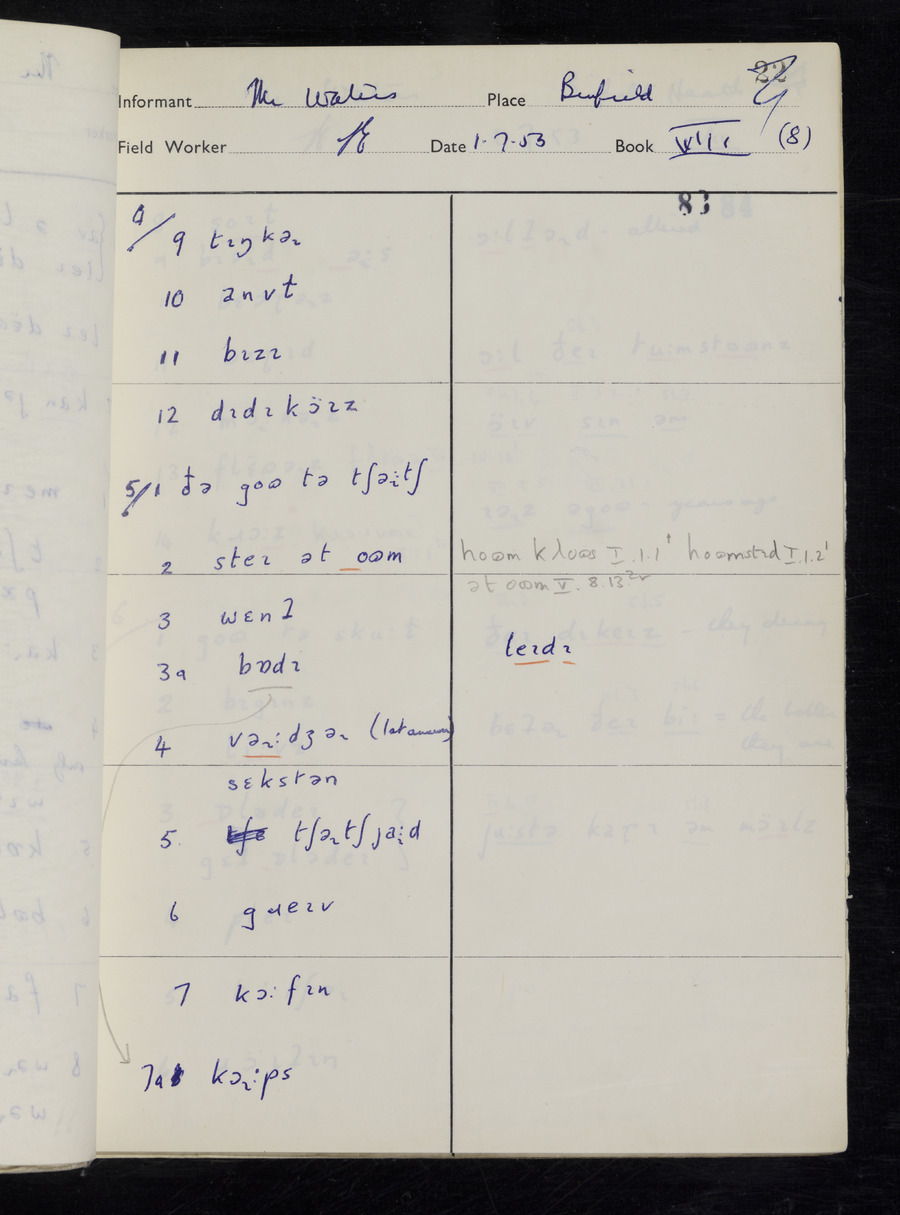 22
Informant Mr Waters Place Binfield
Field Worker Date 1.7.53 Book VIII (8)
83
4/9 tɪŋkəɹ
10 ənʌt
11 bɪzɪ
12 dɪdɪköɪz
5/1 ðə goʊ tə tʃəːɹtʃ
2 steɪ ət oʊm hoʊm kloʊs I.1.1 hoʊmstɪd I.1.2
ət oʊm V.8.13
3 wɛnɫ
leɪdɪ
3a bɒdɪ
4 vəɹːdʒəɹ
sɛkstən
5. tʃəɹtʃjaːɹd
6 gɹeɪv
7 kɔːfɪn
7a kɔɹːps